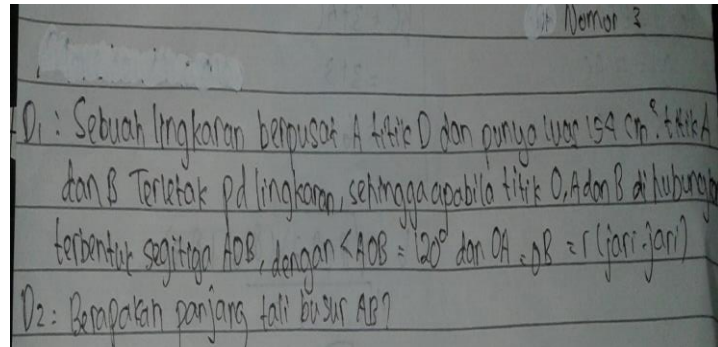 Nomor 3
D1 : Sebuah lingkaran berpusat A titik O dan punya luas 154 cm². titik A
dan B Terletak pd lingkaran, sehingga apabila titik O, A dan B di hubungkan
terbentuk segitiga AOB, dengan <AOB = 120° dan OA = OB = r (jari-jari)
D2 : Berapakah panjang tali busur AB?